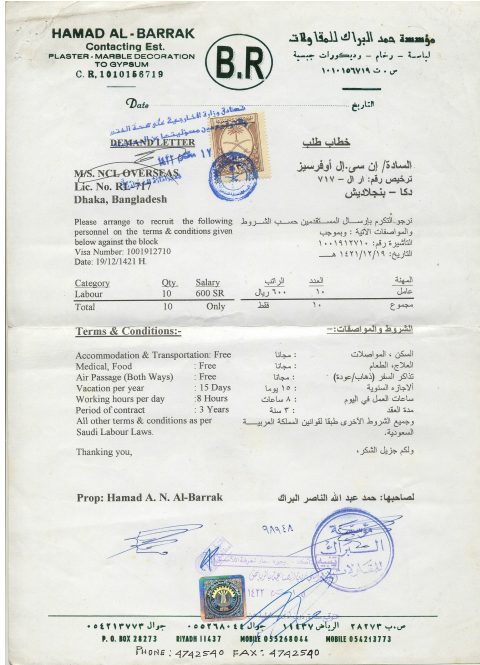 HAMAD AL - BARRAK
Contacting Est.
PLASTER - MARBLE DECORATION
TO GYPSUM
C. R. 1010156719
B.R
مؤسسة حمد البراك للمقاولات
لياسة - رخام - وديكورات جبسية
س . ت ١٠١٠١٥٦٧١٩
Date
التاريخ
DEMAND LETTER
خطاب طلب
M/S. NCL OVERSEAS
Lic. No. RL 717
Dhaka, Bangladesh
السادة/ إن سي.إل أوفرسيز
ترخيص رقم: ار ال - ٧١٧
دكا - بنجلاديش
Please arrange to recruit the following
personnel on the terms & conditions given
below against the block
Visa Number: 1001912710
Date: 19/12/1421 H.
نرجو التكرم بإرسال المستقدمين حسب الشروط
والمواصفات الآتية : وبموجب
التأشيرة رقم: ١٠٠١٩١٢٧١٠
التاريخ: ١٤٢١/١٢/١٩ هـ
Category Qty Salary الراتب العدد المهنة
Labour 10 600 SR ٦٠٠ ريال ١٠ عامل
Total 10 Only فقط ١٠ مجموع
Terms & Conditions:-
الشروط والمواصفات:-
Accommodation & Transportation: Free
Medical, Food : Free
Air Passage (Both Ways) : Free
Vacation per year : 15 Days
Working hours per day :8 Hours
Period of contract : 3 Years
All other terms & conditions as per
Saudi Labour Laws.
السكن ، المواصلات : مجانا
العلاج، الطعام : مجانا
تذاكر السفر (ذهاب/عودة) : مجانا
الاجازه السنوية : ١٥ يوما
ساعات العمل في اليوم : ٨ ساعات
مدة العقد : ٣ سنة
وجميع الشروط الأخرى طبقا لقوانين المملكة العربية
السعودية.
Thanking you,
ولكم جزيل الشكر،
Prop: Hamad A. N. Al-Barrak
لصاحبها: حمد عبد الله الناصر البراك
٩٨٩٤٨
مؤسسة
البراك
للمقاولات
ص.ب ٢٨٢٧٣ الرياض ١١٤٣٧ جوال ٠٥٥٢٦٨٠٤٤ جوال ٠٥٤٢١٣٧٧٣
P. O. BOX 28273 RIYADH 11437 MOBILE 055268044 MOBILE 054213773
PHONE: 4742540 FAX: 4742540